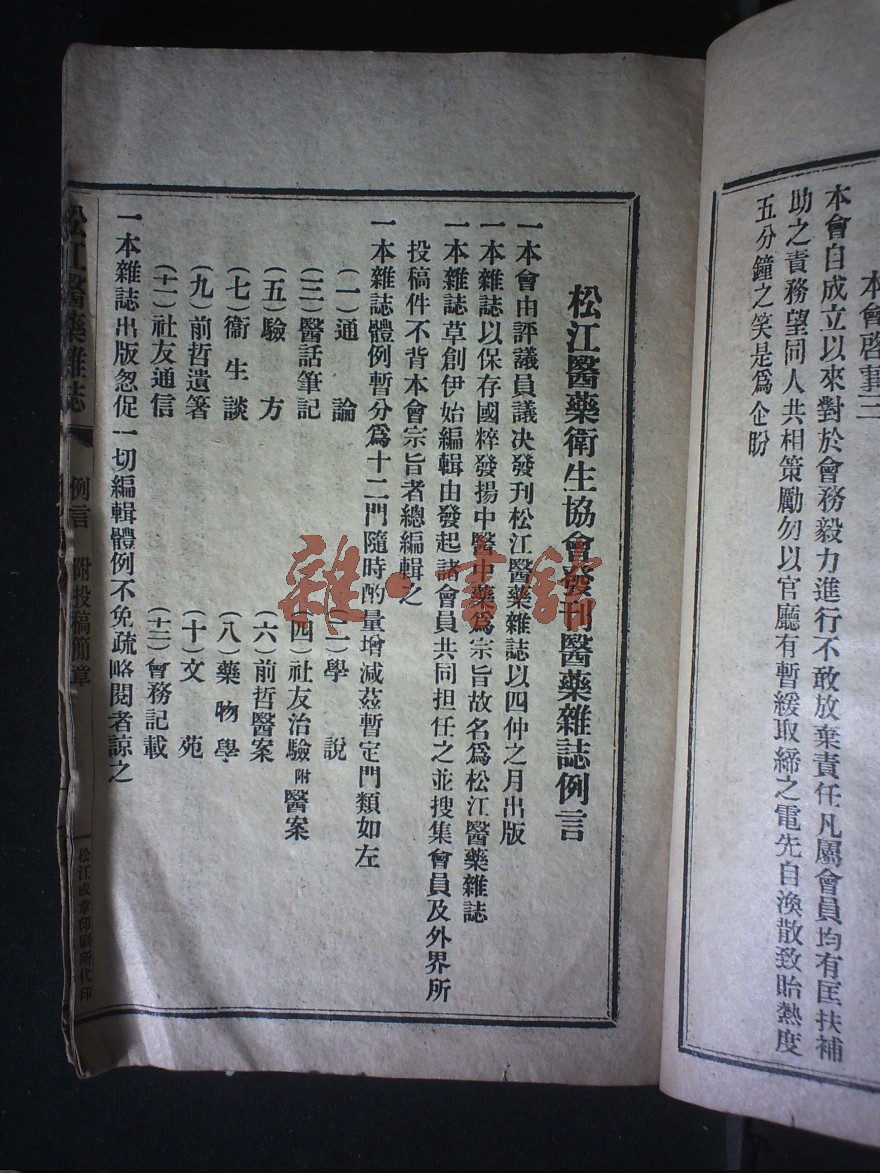 本會啓事三
本會自成立以來對於會務毅力進行不敢放棄責任凡屬會員均有匡扶補
助之責務望同人共相策勵勿以官廳有暫緩取締之電先自渙散致貽熱度
五分鐘之笑是爲企盼
松江醫藥衛生協會發刊醫藥雜誌例言
一本會由評議員議决發刊松江醫藥雜誌以四仲之月出版
一本雜誌以保存國粹發揚中醫中藥爲宗旨故名爲松江醫藥雜誌
一本雜誌草創伊始編輯由發起諸會員共同担任之並搜集會員及外界所
投稿件不背本會宗旨者總編輯之
一本雜誌體例暫分爲十二門隨時酌量增減茲暫定門類如左
(一)通論 (二)學說
(三)醫話筆記 (四)社友治驗附醫案
(五)驗方 (六)前哲醫案
(七)衞生談 (八)藥物學
(九)前哲遺著 (十)文苑
(十一)社友通信 (十二)會務記載
一本雜誌出版怱促一切編輯體例不免疏略閱者諒之
松江醫藥雜誌 例言 附投稿簡章 松江成章印刷所代印
雜·書館